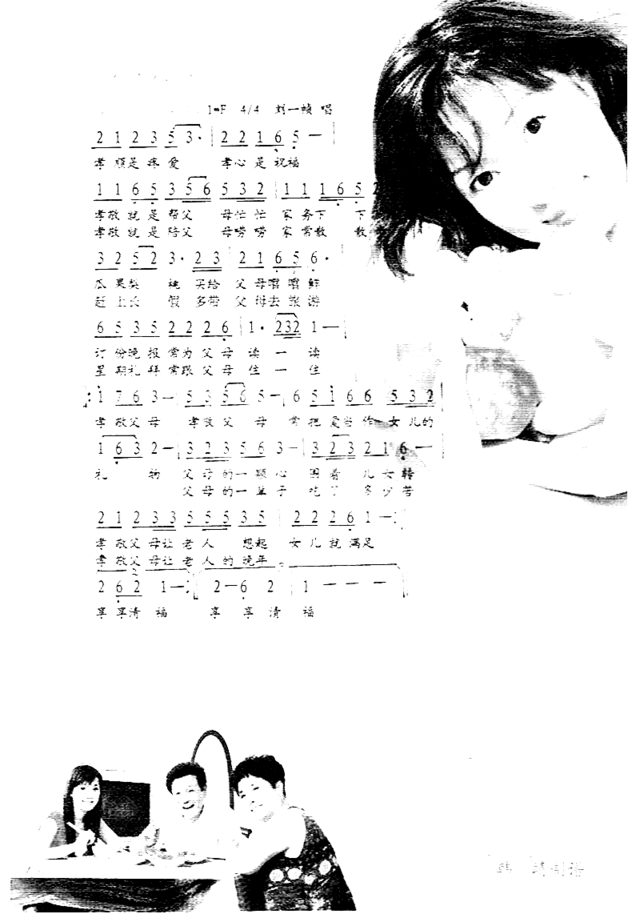 1=F 4/4 刘一帧 唱
2 1 2 3 5 3· | 2 2 1 6 5 — |
孝顺是疼爱 孝心是祝福
1 1 6 5 3 5 6 5 3 2 | 1 1 1 6 5 2
孝敬就是帮父 母忙忙 家务下 下
孝敬就是陪父 母唠唠 家常散 散
3 2 5 2 3· 2 3 | 2 1 6 5 6·
瓜果梨 桃 买给 父母嚐嚐鲜
赶上长 假 多带 父母去旅游
6 5 3 5 2 2 2 6 | 1· 2 3 2 1 — |
订份晚报常为父母 读一 读
星期礼拜常跟父母 住一 住
1 7 6 3 — | 5 3 5 6 5 — | 6 5 1 6 6 5 3 2
孝敬父母 孝敬父 母 常把爱当作 女儿的
1 6 3 2 — | 3 2 3 5 6 3 — | 3 2 3 2 1 6 —
礼 物 父母的一颗心 围着 儿女转
父母的一辈子 吃了 多少苦
2 1 2 3 3 5 5 5 3 5 | 2 2 2 6 1 — :
孝敬父母让老人 想起 女儿就满足
孝敬父母让老人的晚年
2 6 2 1 — : 2 — 6 2 | 1 — — —
享享清福 享 享清 福